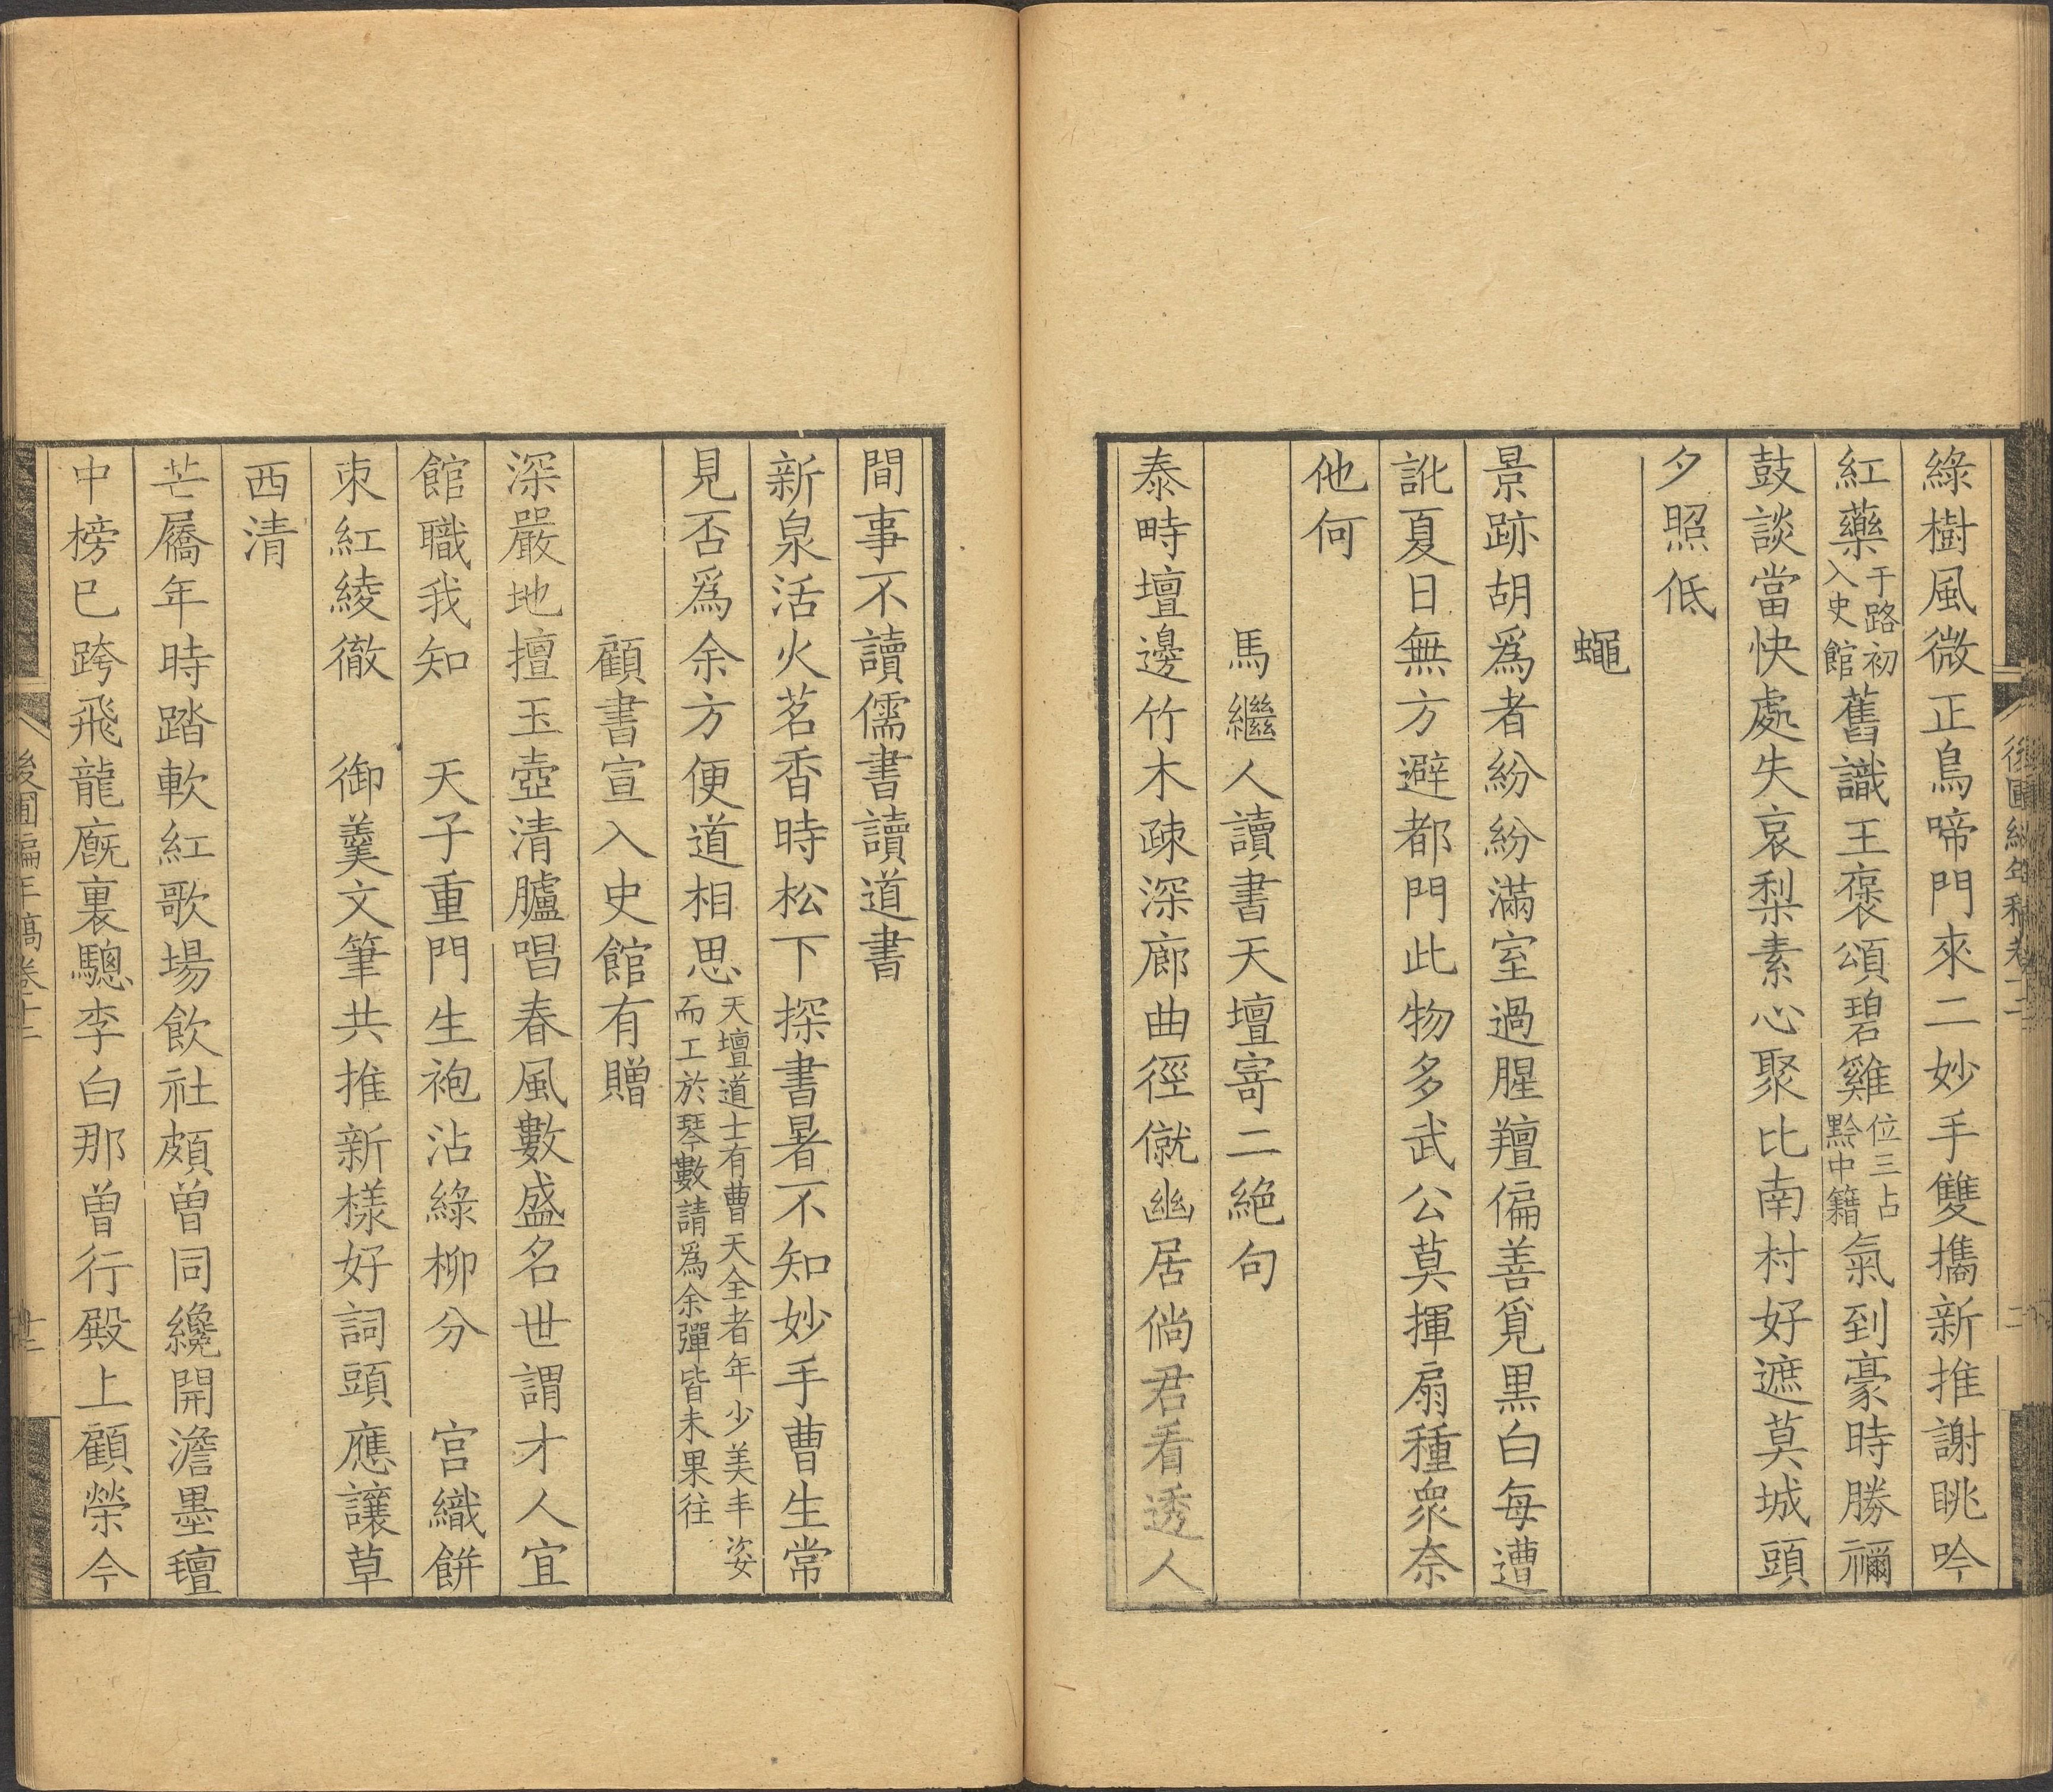 綠樹風微正鳥啼門來二妙手雙攜新推謝眺吟
紅藥于路初入史館舊識王褒頌碧雞位三占黔中籍氣到豪時勝禰
鼓談當快處失哀梨素心聚比南村好遮莫城頭
夕照低
蠅
景跡胡爲者紛紛滿室過腥羶偏善覓黑白每遭
訛夏日無方避都門此物多武公莫揮扇種衆奈
他何
馬繼人讀書天壇寄二絕句
泰畤壇邊竹木疎深廊曲徑僦幽居倘君看透人
間事不讀儒書讀道書
新泉活火茗香時松下探書暑不知妙手曹生常
見否爲余方便道相思天壇道士有曹天全者年少美丰姿而工於琴數請爲余彈皆未果往
顧書宣入史館有贈
深嚴地擅玉壺清臚唱春風數盛名世謂才人宜
館職我知 天子重門生袍沾綠柳分 宮織餅
朿紅綾徹 御羹文筆共推新樣好詞頭應讓草
西清
芒屩年時踏軟紅歌場飲社頗曾同纔開澹墨氊
中榜已跨飛龍廐裏驄李白那曾行殿上顧榮今
後圃編年稿卷十二
十二